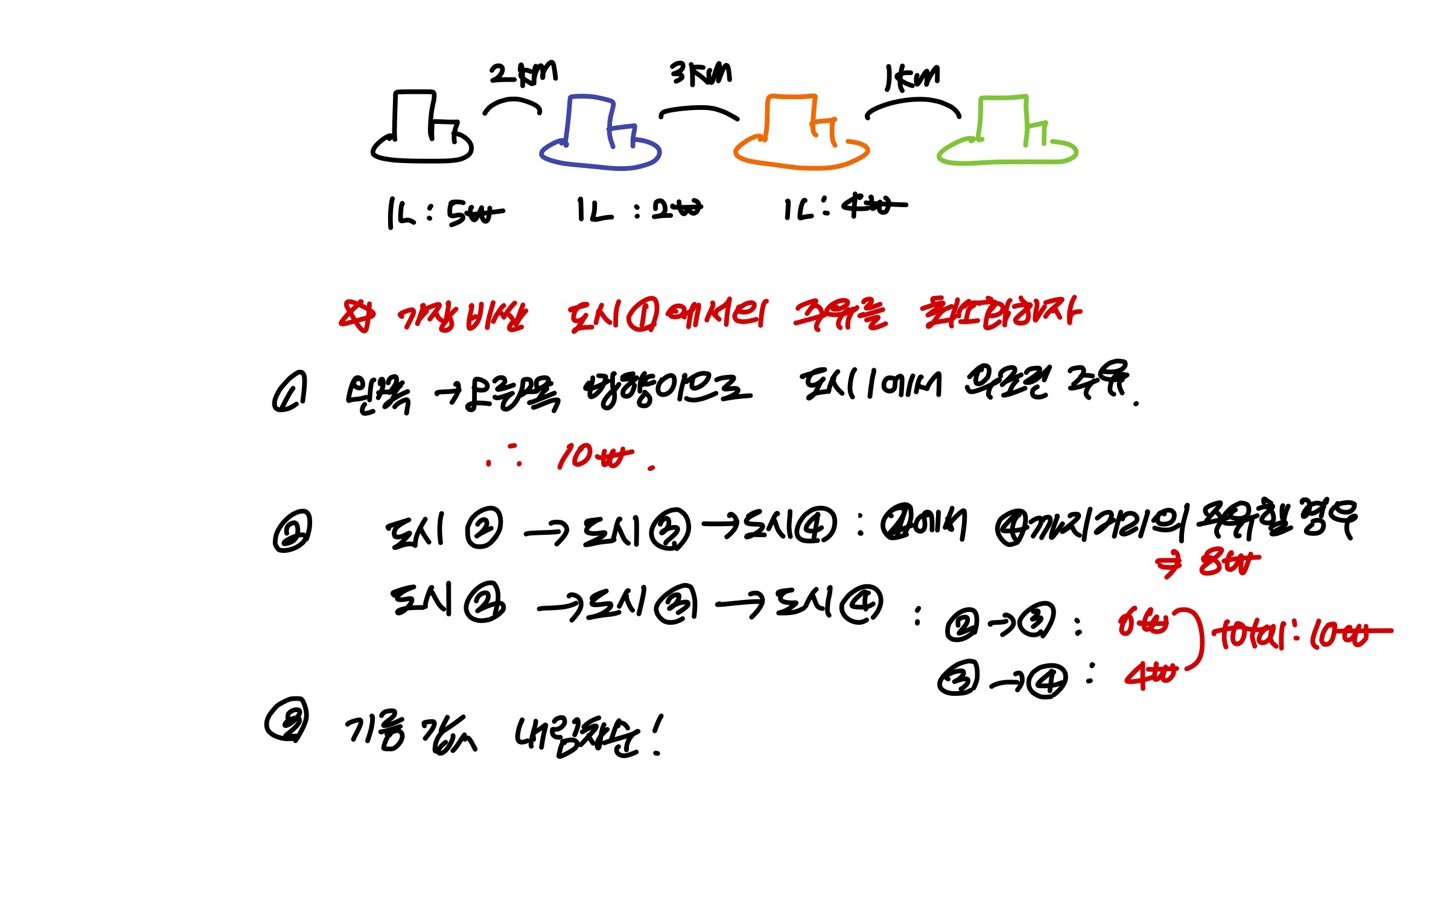 2km 3km 1km
1L : 5₩ 1L : 2₩ 1L : 4₩
※ 가장 비싼 도시①에서의 주유를 최소화하자
① 왼쪽 → 오른쪽 방향이므로 도시1에서 무조건 주유.
∴ 10₩.
② 도시② → 도시③ → 도시④ : ②에서 ④까지거리의 주유할 경우
⇒ 8₩
도시② → 도시③ → 도시④ : ② → ③ : 6₩
total : 10₩
③ → ④ : 4₩
③ 기름 값 내림차순!